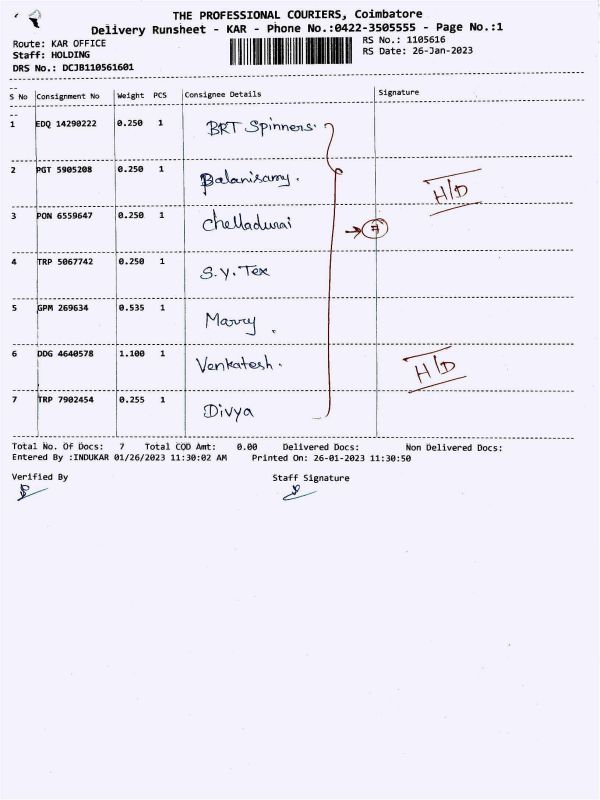 THE PROFESSIONAL COURIERS, Coimbatore
Delivery Runsheet - KAR - Phone No.:0422-3505555 - Page No.:1
Route: KAR OFFICE RS No.: 1105616
Staff: HOLDING RS Date: 26-Jan-2023
DRS No.: DCJB110561601
S No Consignment No Weight PCS Consignee Details Signature
1 EDQ 14290222 0.250 1 BRT Spinners.
2 PGT 5905208 0.250 1 Balanisamy. H/D
3 PON 6559647 0.250 1 Chelladurai
4 TRP 5067742 0.250 1 S.Y. Tex
5 GPM 269634 0.535 1 Marry.
6 DDG 4640578 1.100 1 Venkatesh. H/D
7 TRP 7902454 0.255 1 Divya
Total No. Of Docs: 7 Total COD Amt: 0.00 Delivered Docs: Non Delivered Docs:
Entered By :INDUKAR 01/26/2023 11:30:02 AM Printed On: 26-01-2023 11:30:50
Verified By Staff Signature